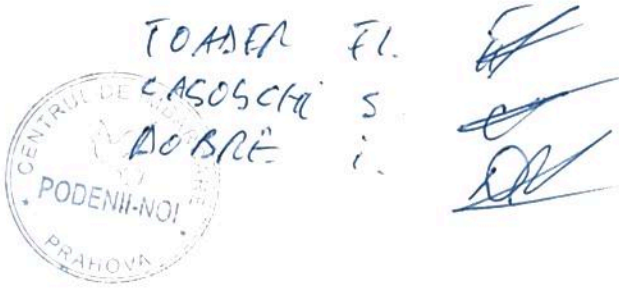 TOADER Fl.
CASOSCHI S
DOBRE i.
CENTRUL DE
PODENII-NOI
PRAHOVA